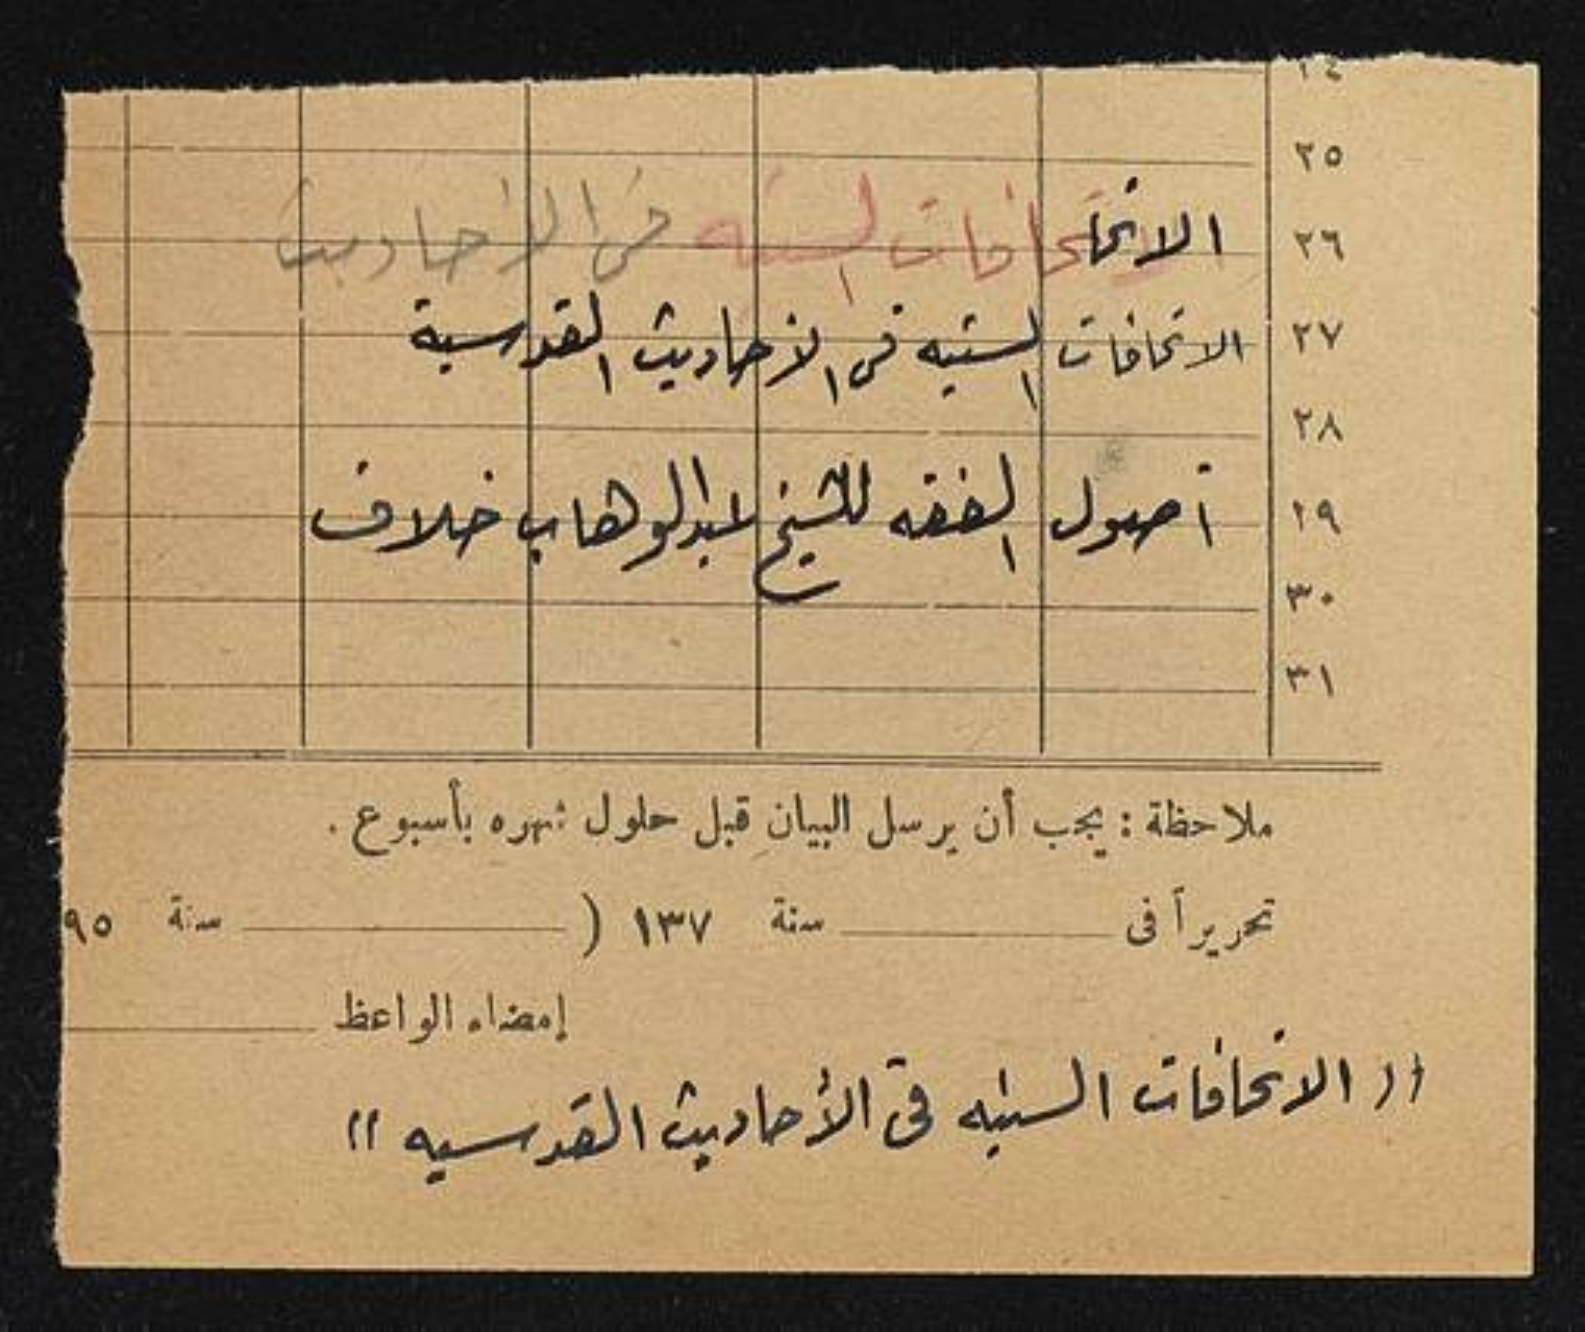 ٢٤
٢٥
٢٦ الاتحافات السنيه في الأحاديث
٢٧ الاتحافات السنيه فى الاحاديث القدسية
٢٨
٢٩ أصول الفقه للشيخ عبد الوهاب خلاف
٣٠
٣١
ملاحظة : يجب أن يرسل البيان قبل حلول شهره بأسبوع .
تحريراً فى سنة ١٣٧ ( سنة ٩٥
إمضاء الواعظ
(( الاتحافات السنيه فى الأحاديث القدسيه ))